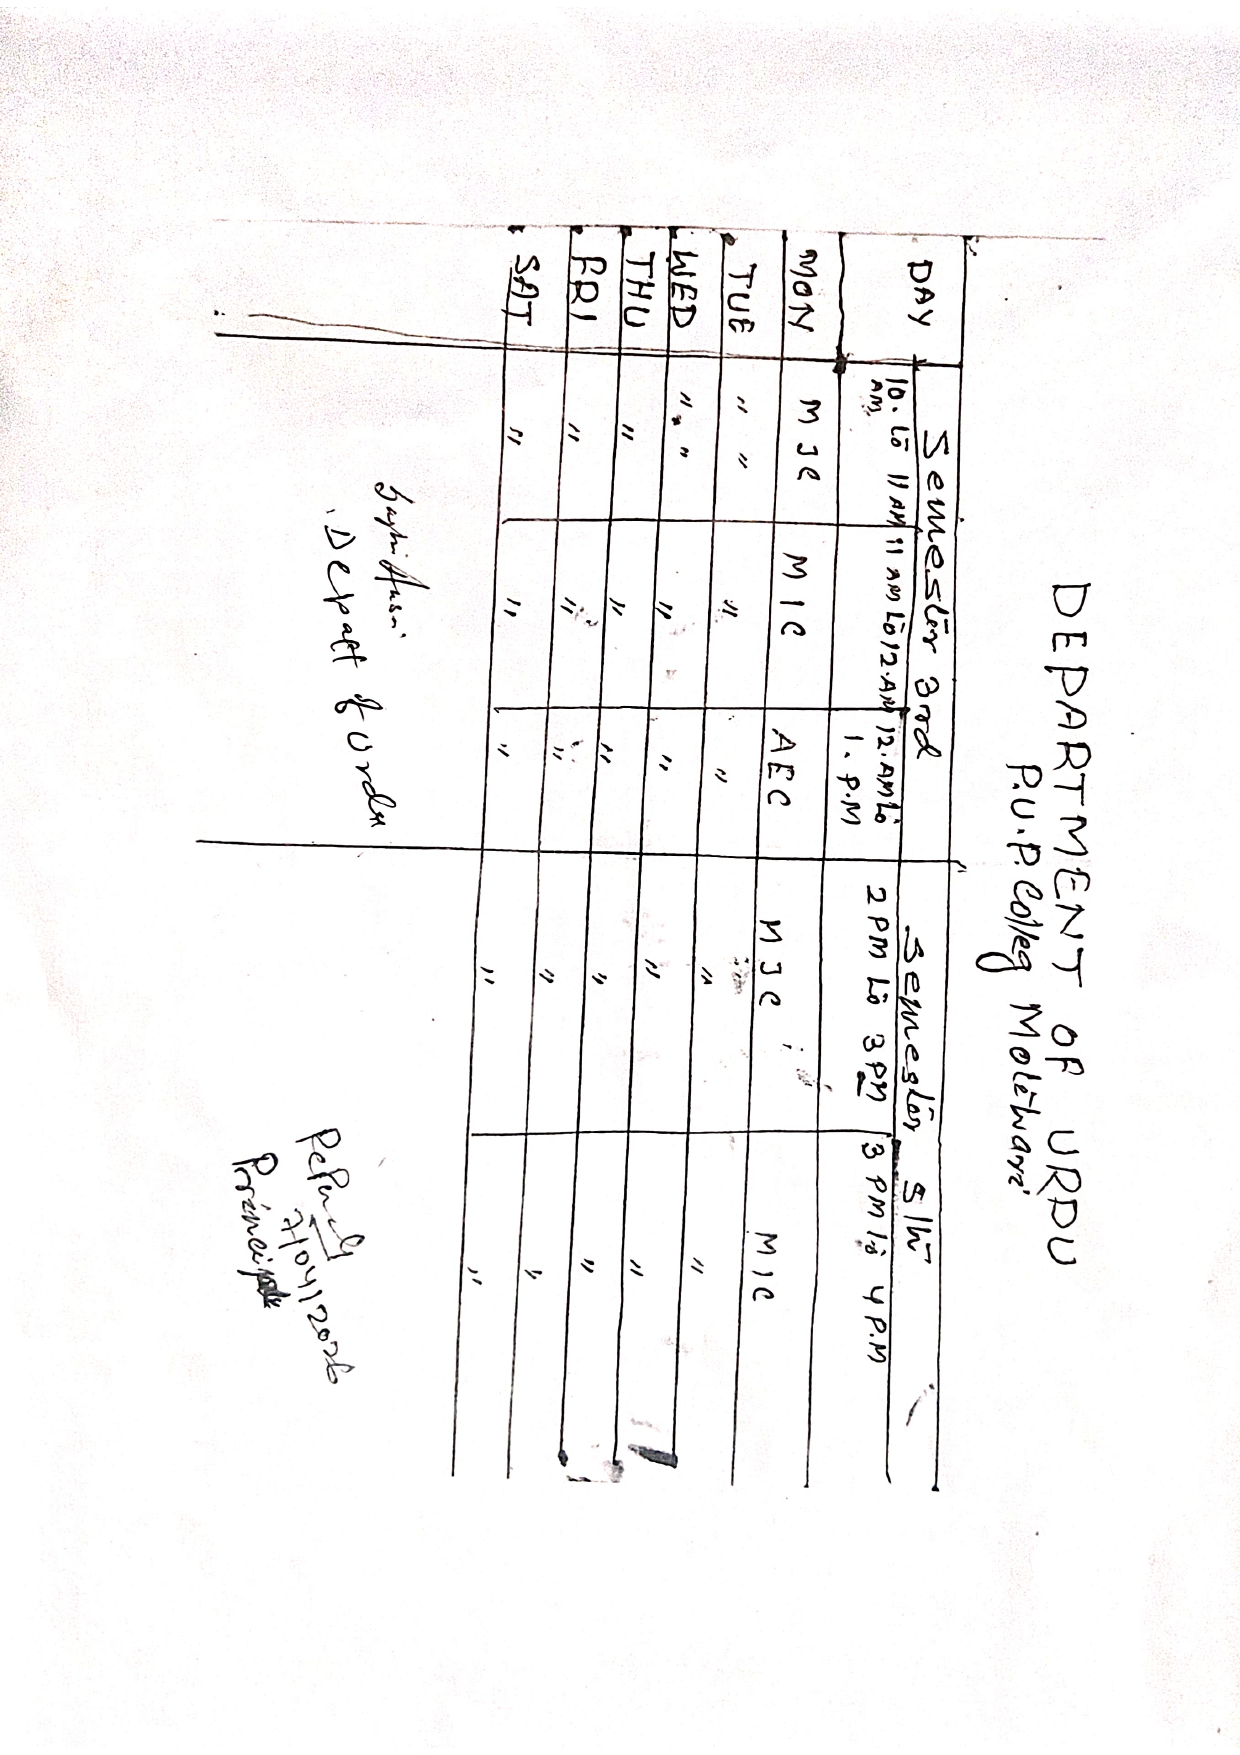 DEPARTMENT OF URDU
P.U.P. Colleg Motihari
DAY Semester 3rd Semester 5th
10. to 11 AM 11 AM to 12.AM 12.AM to 2 PM to 3 PM 3 PM to 4 P.M
AM 1. P.M
MON MJC MIC AEC MJC MIC
TUE " " " " " "
WED " " " " " "
THU " " " " "
FRI " " " " "
SAT " " " " "
Depatt of Urdu
7/04/2026
Principal